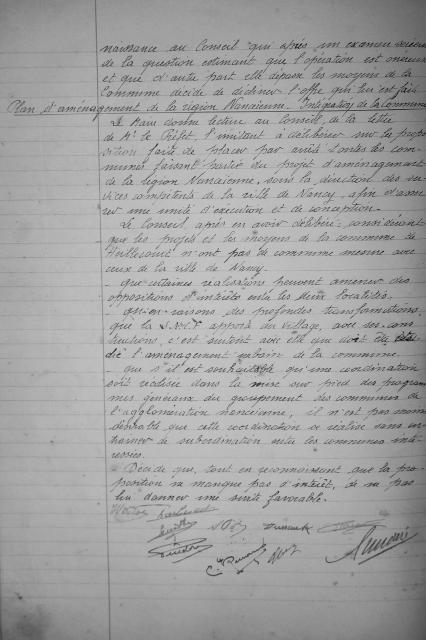 naissance au Conseil qui après un examen
de la question estimant que l'opération est onéreuse
et que d'autre part elle dépasse les moyens de la
Commune décide de décliner l'offre qui leur est faite
Plan d'aménagement de la région Nancéienne. Intégration de la Commune
Le Maire donne lecture au Conseil de la lettre
de Mr le Préfet, l'invitant à délibérer sur la propo
sition faite de placer par arrêté toutes les com-
munes faisant partie du projet d'aménagement
de la région Nancéienne, sous la direction des ser
vices compétents de la ville de Nancy, afin d'assu
rer une unité d'exécution et de conception.
Le Conseil, après en avoir délibéré, considérant
que les projets et les moyens de la commune de
n'ont pas de commune mesure avec
ceux de la ville de Nancy.
- que certaines réalisations peuvent amener des
oppositions d'intérêts entre les deux localités.
- qu'en raisons des profondes transformations
que la apporte au village, avec ses cons
tructions, c'est surtout avec elle que doit être étu
dié l'aménagement urbain de la commune.
- que s'il est souhaitable qu'une coordination
soit réalisée dans la mise sur pied des program
mes généraux du groupement des communes de
l'agglomération nancéienne, il n'est pas moins
désirable que cette coordination se réalise sans en-
traîner de subordination entre les communes inté-
ressées.
Décide que, tout en reconnaissant que la pro
position ne manque pas d'intérêt, de ne pas
lui donner une suite favorable.